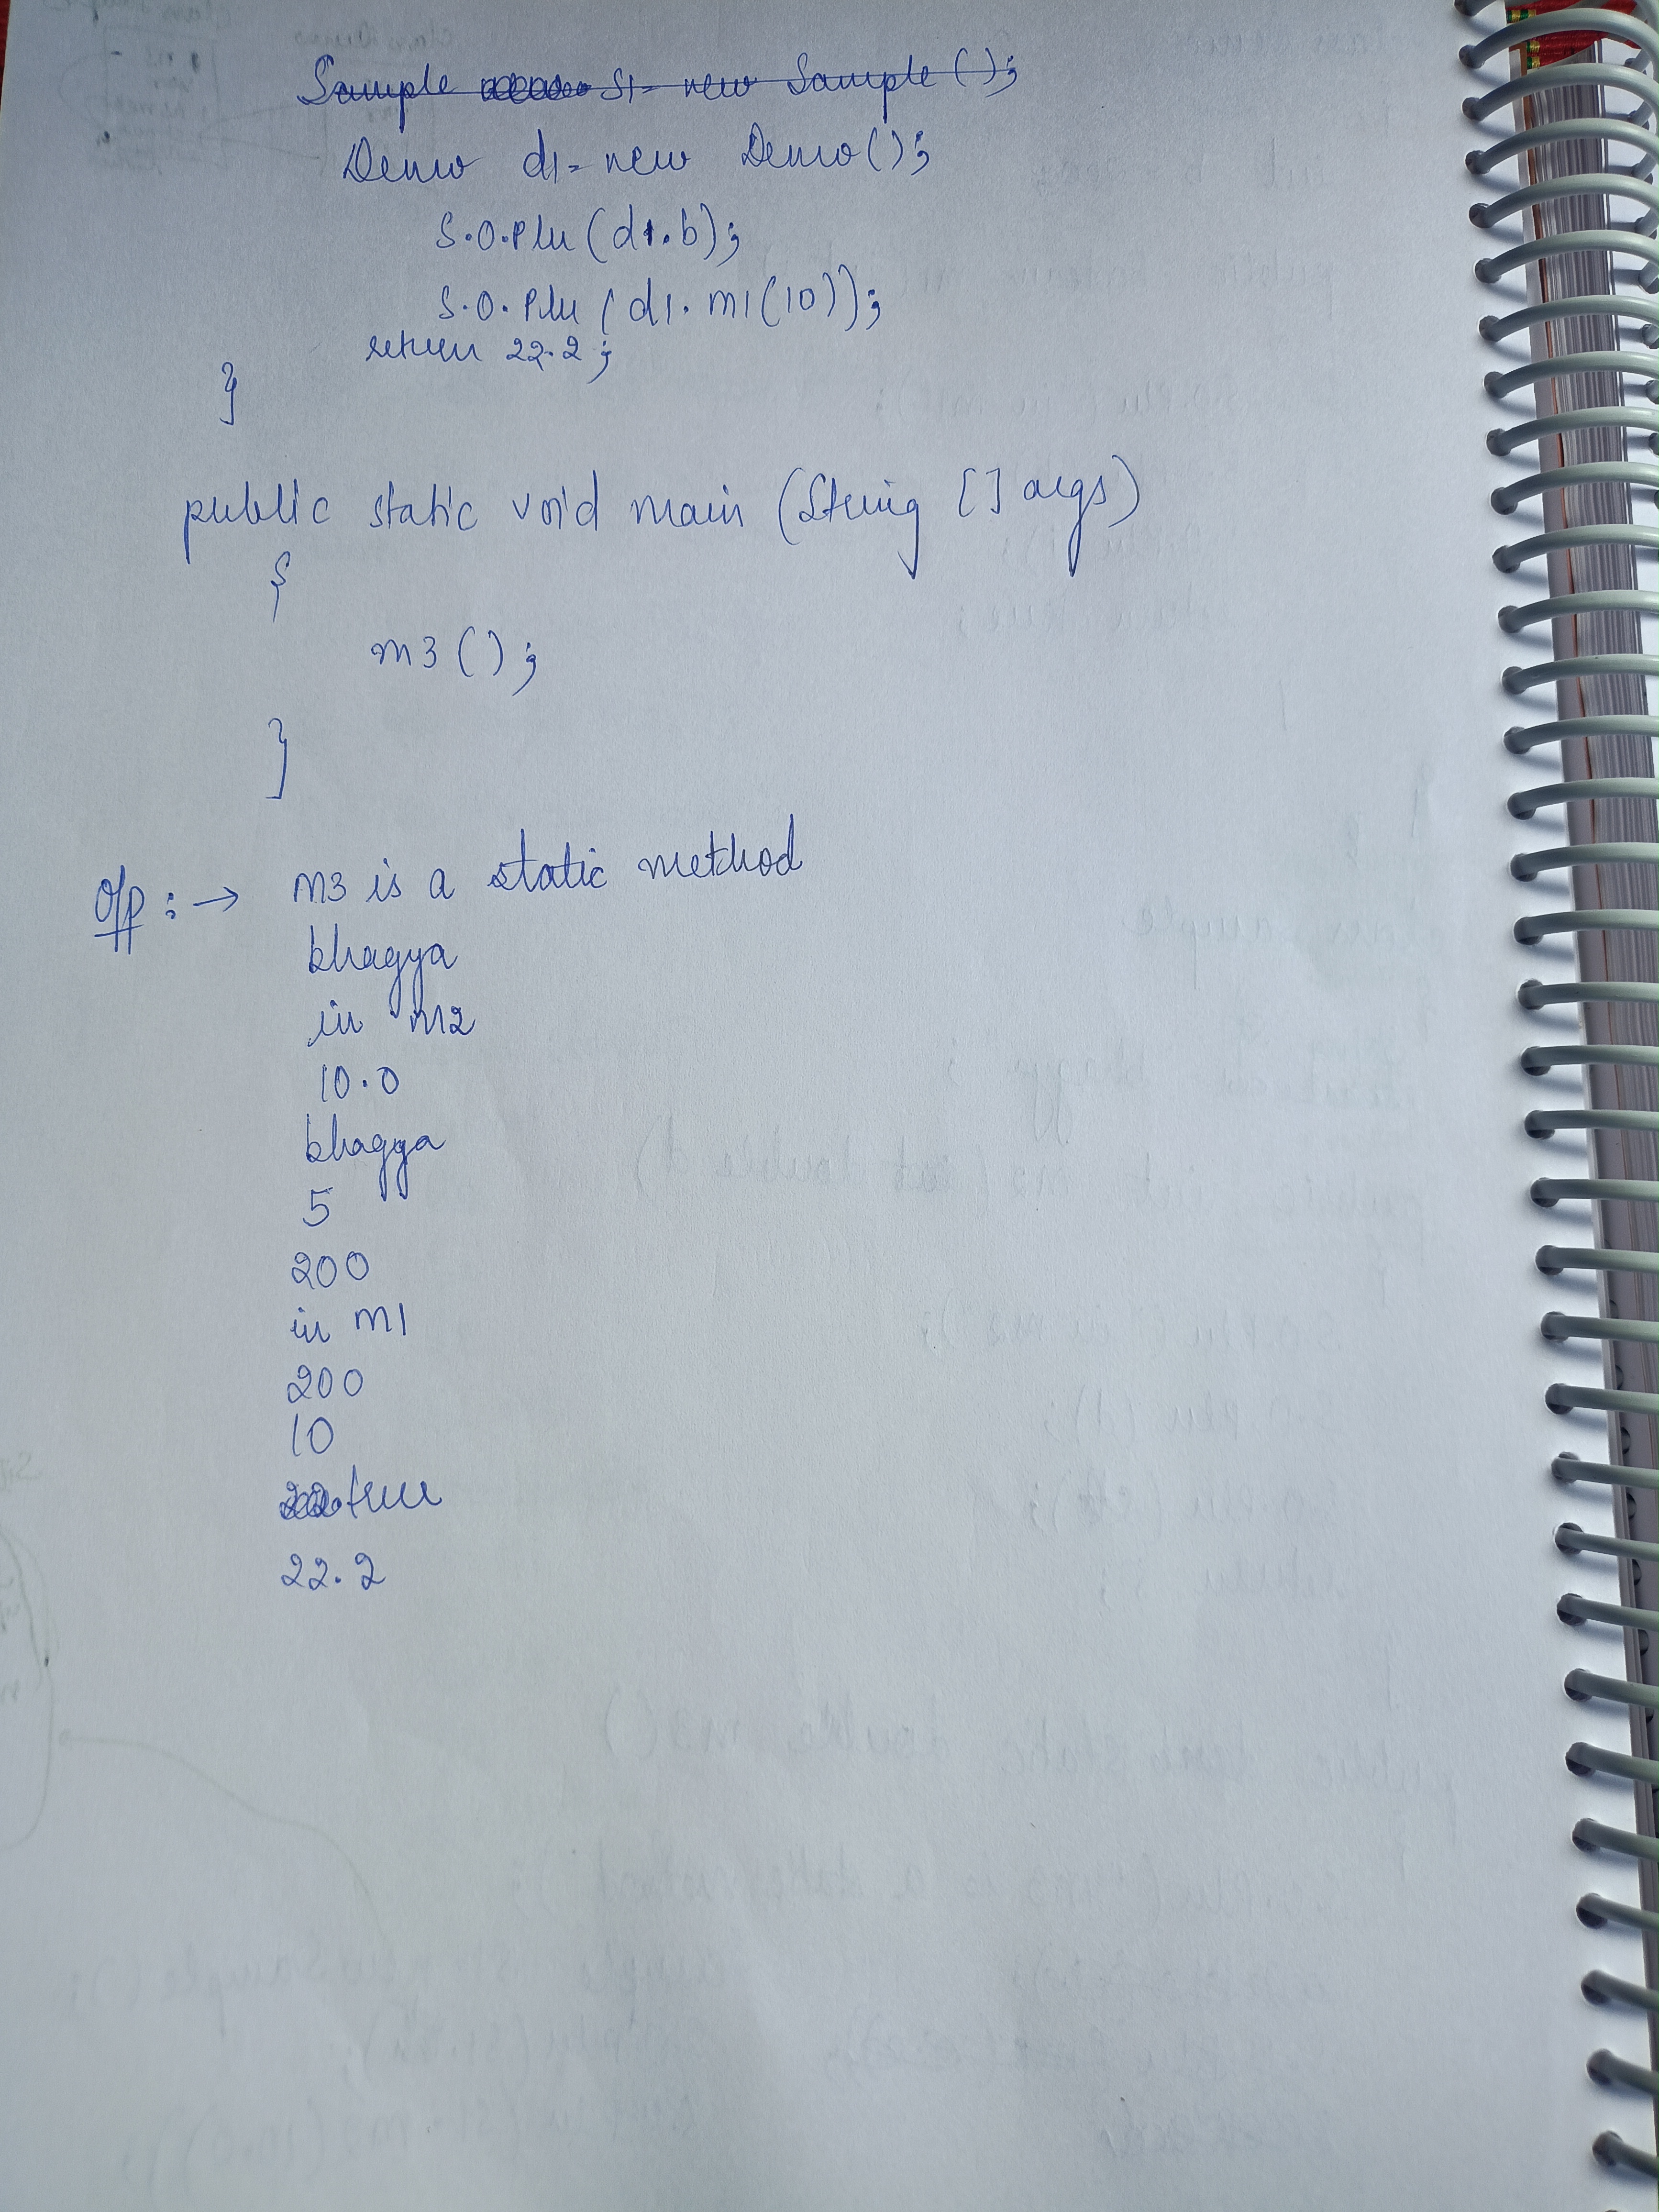 Sample s1= new Sample();
Demo d1= new Demo();
S.O.Pln(d1.b);
S.O.Pln(d1.m1(10));
return 22.2;
}
public static void main (String [] args)
{
m3();
}
O/p :→ m3 is a static method
bhagya
in m2
10.0
bhagya
5
200
in m1
200
10
true
22.2